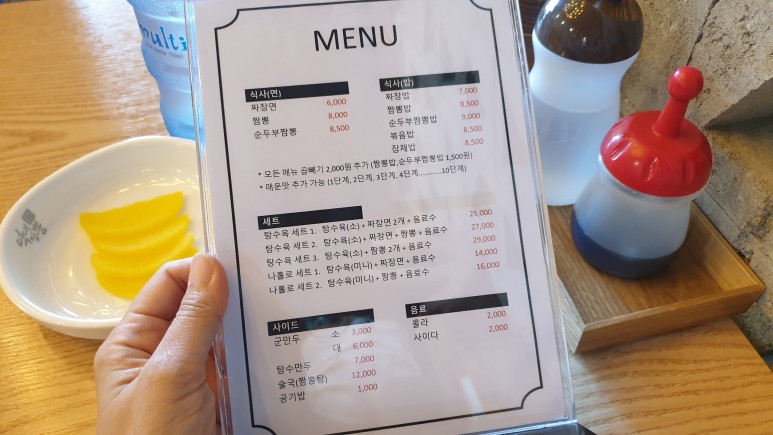 multi
MENU
식사(면)
짜장면 6,000
짬뽕 8,000
순두부짬뽕 8,500
식사(밥)
짜장밥 7,000
짬뽕밥 8,500
순두부짬뽕밥 9,000
볶음밥 8,500
잡채밥 8,500
* 모든 메뉴 곱빼기 2,000원 추가 (짬뽕밥,순두부짬뽕밥 1,500원)
* 매운맛 추가 가능 (1단계, 2단계, 3단계, 4단계...........10단계)
세트
탕수육 세트 1. 탕수육(소) + 짜장면 2개 + 음료수 25,000
탕수육 세트 2. 탕수육(소) + 짜장면 + 짬뽕 + 음료수 27,000
탕수육 세트 3. 탕수육(소) + 짬뽕 2개 + 음료수 29,000
나홀로 세트 1. 탕수육(미니) + 짜장면 + 음료수 14,000
나홀로 세트 2. 탕수육(미니) + 짬뽕 + 음료수 16,000
사이드
군만두 소 3,000
대 6,000
탕수만두 7,000
술국(짬뽕탕) 12,000
공기밥 1,000
음료
콜라 2,000
사이다 2,000